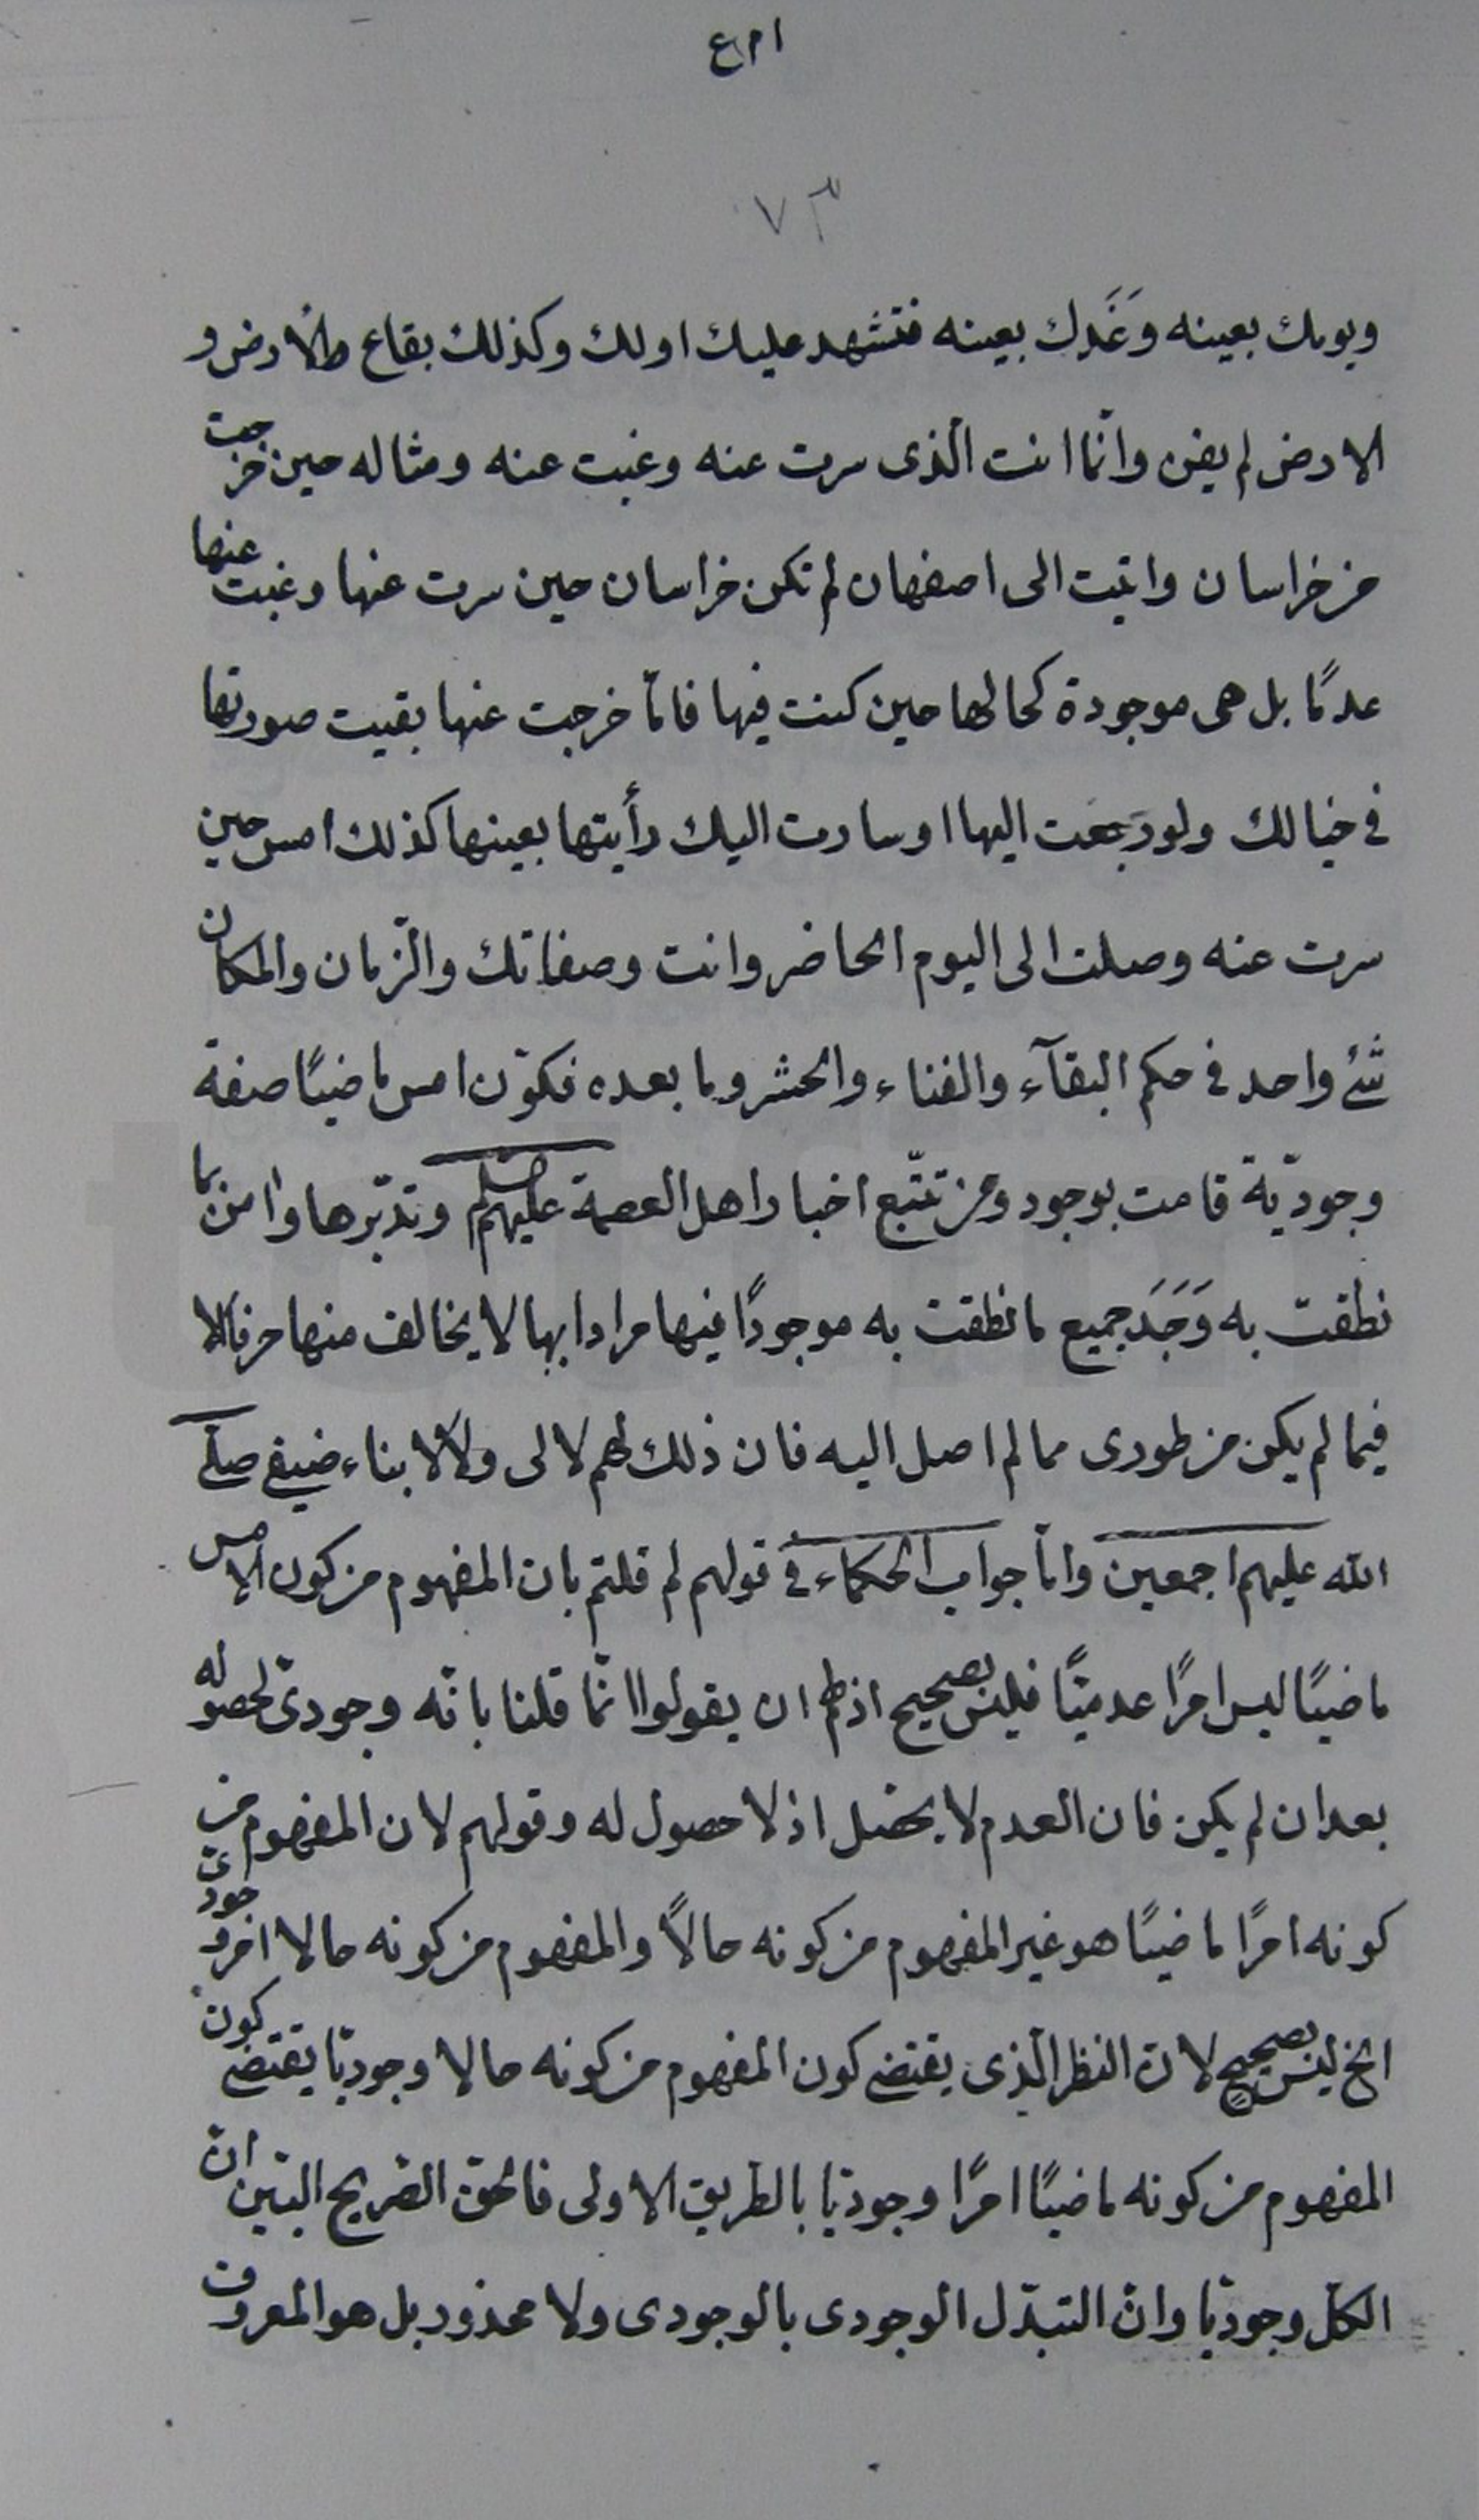 ٧٣
ويومك بعينه وَغَدك بعينه فتشهد عليك او لك وكذلك بقاع الارض و
الارض لم يفن وانّما انت الّذى سرت عنه وغبت عنه ومثاله حين خرجت
من خراسان واتيت الى اصفهان لم تكن خراسان حين سرت عنها وغبت عنها
عدمًا بل هى موجودة كحالها حين كنت فيها فلمّا خرجت عنها بقيت صورتها
فى خيالك ولو رجعت اليها او سارت اليك رأيتها بعينها كذلك امس حين
سرت عنه وصلت الى اليوم الحاضر وانت وصفاتك والزّمان والمكان
شئ واحد فى حكم البقآء والفناء والحشر وما بعده فكون امس ماضيًا صفة
وجوديّة قامت بوجود ومن تتبّع اخبار اهل العصمة عليهم وتدبّرها وامن بما
نطقت به وَجَدَ جميع ما نطقت به موجودًا فيها مرادا بها لا يخالف منها حرفا الا
فيما لم يكن من طورى مما لم اصل اليه فان ذلك لهم لا لى ولا لابناء صنفى صلّى
الله عليهم اجمعين وامّا جواب الحكماء فى قولهم لم قلتم بان المفهوم من كون الامس
ماضيًا ليس امرًا عدميًّا فليس بصحيح اذ لهم ان يقولوا انّما قلنا بانّه وجودىّ لحصوله
بعد ان لم يكن فان العدم لا يحصل اذ لا حصول له وقولهم لان المفهوم من
كونه امرًا ماضيًا هو غير المفهوم من كونه حالاً والمفهوم من كونه حالا امر وجودىّ
الخ ليس بصحيح لانّ النظر الّذى يقتضى كون المفهوم من كونه حالا وجوديّا يقتضى كون
المفهوم من كونه ماضيًا امرًا وجوديّا بالطريق الاولى فالحق الصّريح البيّن انّ
الكلّ وجوديّا وانّ التبدّل الوجودى بالوجودى ولا محذور بل هو المعروف